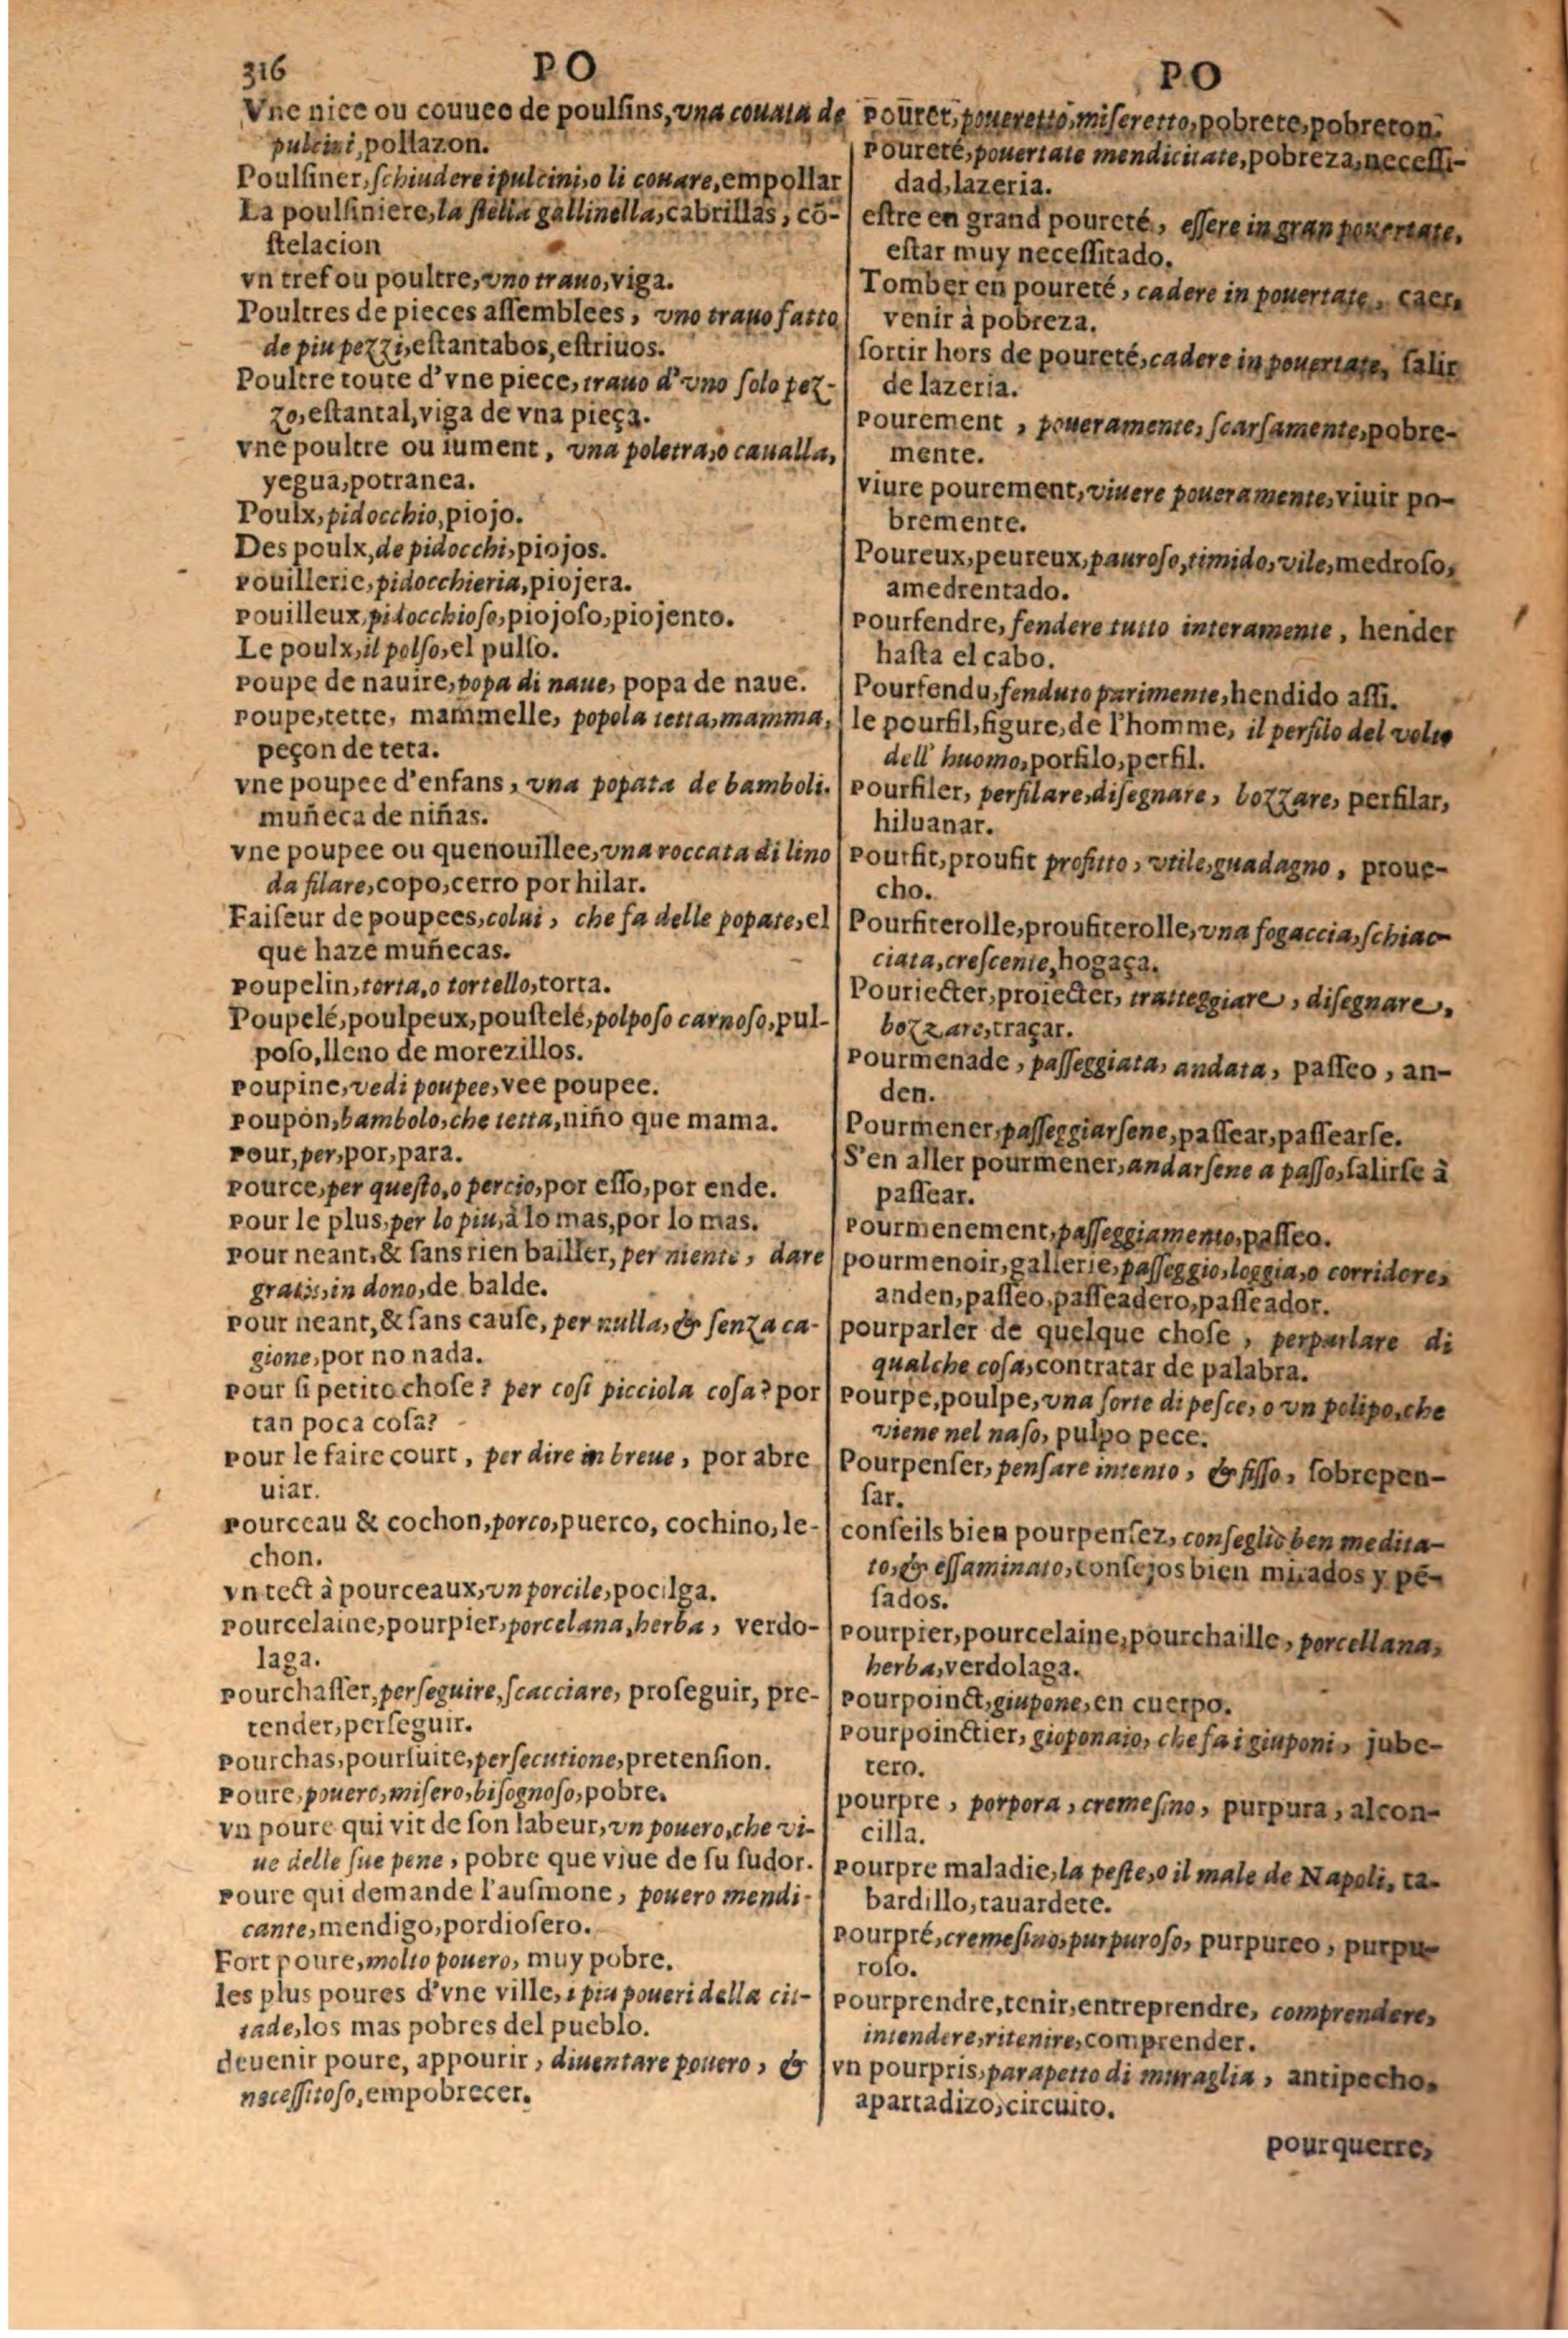 316
PO
PO
Vne nice ou couuee de poulſins, vna couata de
pulcini, pollazon.
Poulſiner, ſchiudere i pulcini, o li couare, empollar
La poulſiniere, la ſtella gallinella, cabrillas, cō-
ſtelacion
vn tref ou poultre, vno trauo, viga.
Poultres de pieces aſſemblees, vno trauo fatto
de piu pezzi, eſtantabos, eſtriuos.
Poultre toute d'vne piece, trauo d'vno ſolo pez-
zo, eſtantal, viga de vna pieça.
vne poultre ou iument, vna poletra, o caualla,
yegua, potranea.
Poulx, pidocchio, piojo.
Des poulx, de pidocchi, piojos.
Pouillerie, pidocchieria, piojera.
Pouilleux, pidocchioſo, piojoſo, piojento.
Le poulx, il polſo, el pulſo.
Poupe de nauire, popa di naue, popa de naue.
Poupe, tette, mammelle, popola tetta, mamma,
peçon de teta.
vne poupee d'enfans, vna popata de bamboli.
muñeca de niñas.
vne poupee ou quenouillee, vna roccata di lino
da filare, copo, cerro por hilar.
Faiſeur de poupees, colui, che fa delle popate, el
que haze muñecas.
Poupelin, torta, o tortello, torta.
Poupelé, poulpeux, pouſtelé, polpoſo carnoſo, pul-
poſo, lleno de morezillos.
Poupine, vedi poupee, vee poupee.
Poupon, bambolo, che tetta, niño que mama.
Pour, per, por, para.
Pource, per queſto, o percio, por eſſo, por ende.
Pour le plus, per lo piu, à lo mas, por lo mas.
Pour neant, & ſans rien bailler, per niente, dare
gratis, in dono, de balde.
Pour neant, & ſans cauſe, per nulla, & ſenza ca-
gione, por no nada.
Pour ſi petite choſe? per coſi picciola coſa? por
tan poca coſa?
Pour le faire court, per dire in breue, por abre
uiar.
Pourceau & cochon, porco, puerco, cochino, le-
chon.
vn tect à pourceaux, vn porcile, pocilga.
Pourcelaine, pourpier, porcelana, herba, verdo-
laga.
Pourchaſſer, perſeguire, ſcacciare, proſeguir, pre-
tender, perſeguir.
Pourchas, pourſuite, perſecutione, pretenſion.
Poure, pouero, miſero, biſognoſo, pobre.
vn poure qui vit de ſon labeur, vn pouero, che vi-
ue delle ſue pene, pobre que viue de ſu ſudor.
Poure qui demande l'auſmone, pouero mendi-
cante, mendigo, pordioſero.
Fort poure, molto pouero, muy pobre.
les plus poures d'vne ville, i piu poueri della cit-
tade, los mas pobres del pueblo.
deuenir poure, appourir, diuentare pouero, &
neceſſitoſo, empobrecer.
Pouret, poueretto, miſeretto, pobrete, pobreton.
Poureté, pouertate mendicitate, pobreza, neceſſi-
dad, lazeria.
eſtre en grand poureté, eſſere in gran pouertate,
eſtar muy neceſſitado.
Tomber en poureté, cadere in pouertate, caer,
venir à pobreza.
ſortir hors de poureté, cadere in pouertate, ſalir
de lazeria.
Pourement, poueramente, ſcarſamente, pobre-
mente.
viure pourement, viuere poueramente, viuir po-
bremente.
Poureux, peureux, pauroſo, timido, vile, medroſo,
amedrentado.
Pourfendre, fendere tutto interamente, hender
haſta el cabo.
Pourfendu, fenduto parimente, hendido aſſi.
le pourfil, figure, de l'homme, il perfilo del volto
dell' huomo, porfilo, perfil.
Pourfiler, perfilare, diſegnare, bozzare, perfilar,
hiluanar.
Pourfit, proufit profitto, vtile, guadagno, proue-
cho.
Pourfiterolle, proufiterolle, vna fogaccia, ſchiac-
ciata, creſcente, hogaça.
Pouriecter, proiecter, tratteggiare, diſegnare,
bozzare, traçar.
Pourmenade, paſſeggiata, andata, paſſeo, an-
den.
Pourmener, paſſeggiarſene, paſſear, paſſearſe.
S'en aller pourmener, andarſene a paſſo, ſalirſe à
paſſear.
Pourmenement, paſſeggiamento, paſſeo.
pourmenoir, gallerie, paſſeggio, loggia, o corridore,
anden, paſſeo, paſſeadero, paſſeador.
pourparler de quelque choſe, perparlare di
qualche coſa, contratar de palabra.
Pourpe, poulpe, vna ſorte di peſce, o vn polipo, che
viene nel naſo, pulpo pece.
Pourpenſer, penſare intento, & fiſſo, ſobrepen-
ſar.
conſeils bien pourpenſez, conſeglio ben medita-
to, & eſſaminato, conſejos bien mirados y pē-
ſados.
Pourpier, pourcelaine, pourchaille, porcellana,
herba, verdolaga.
Pourpoinct, giupone, en cuerpo.
Pourpoinctier, gioponaio, che fa i giuponi, jube-
tero.
pourpre, porpora, cremeſino, purpura, alcon-
cilla.
Pourpre maladie, la peſte, o il male de Napoli, ta-
bardillo, tauardete.
Pourpré, cremeſino, purpuroſo, purpureo, purpu-
roſo.
Pourprendre, tenir, entreprendre, comprendere,
intendere, ritenire, comprender.
vn pourpris, parapetto di muraglia, antipecho,
apartadizo, circuito.
pourquerre,